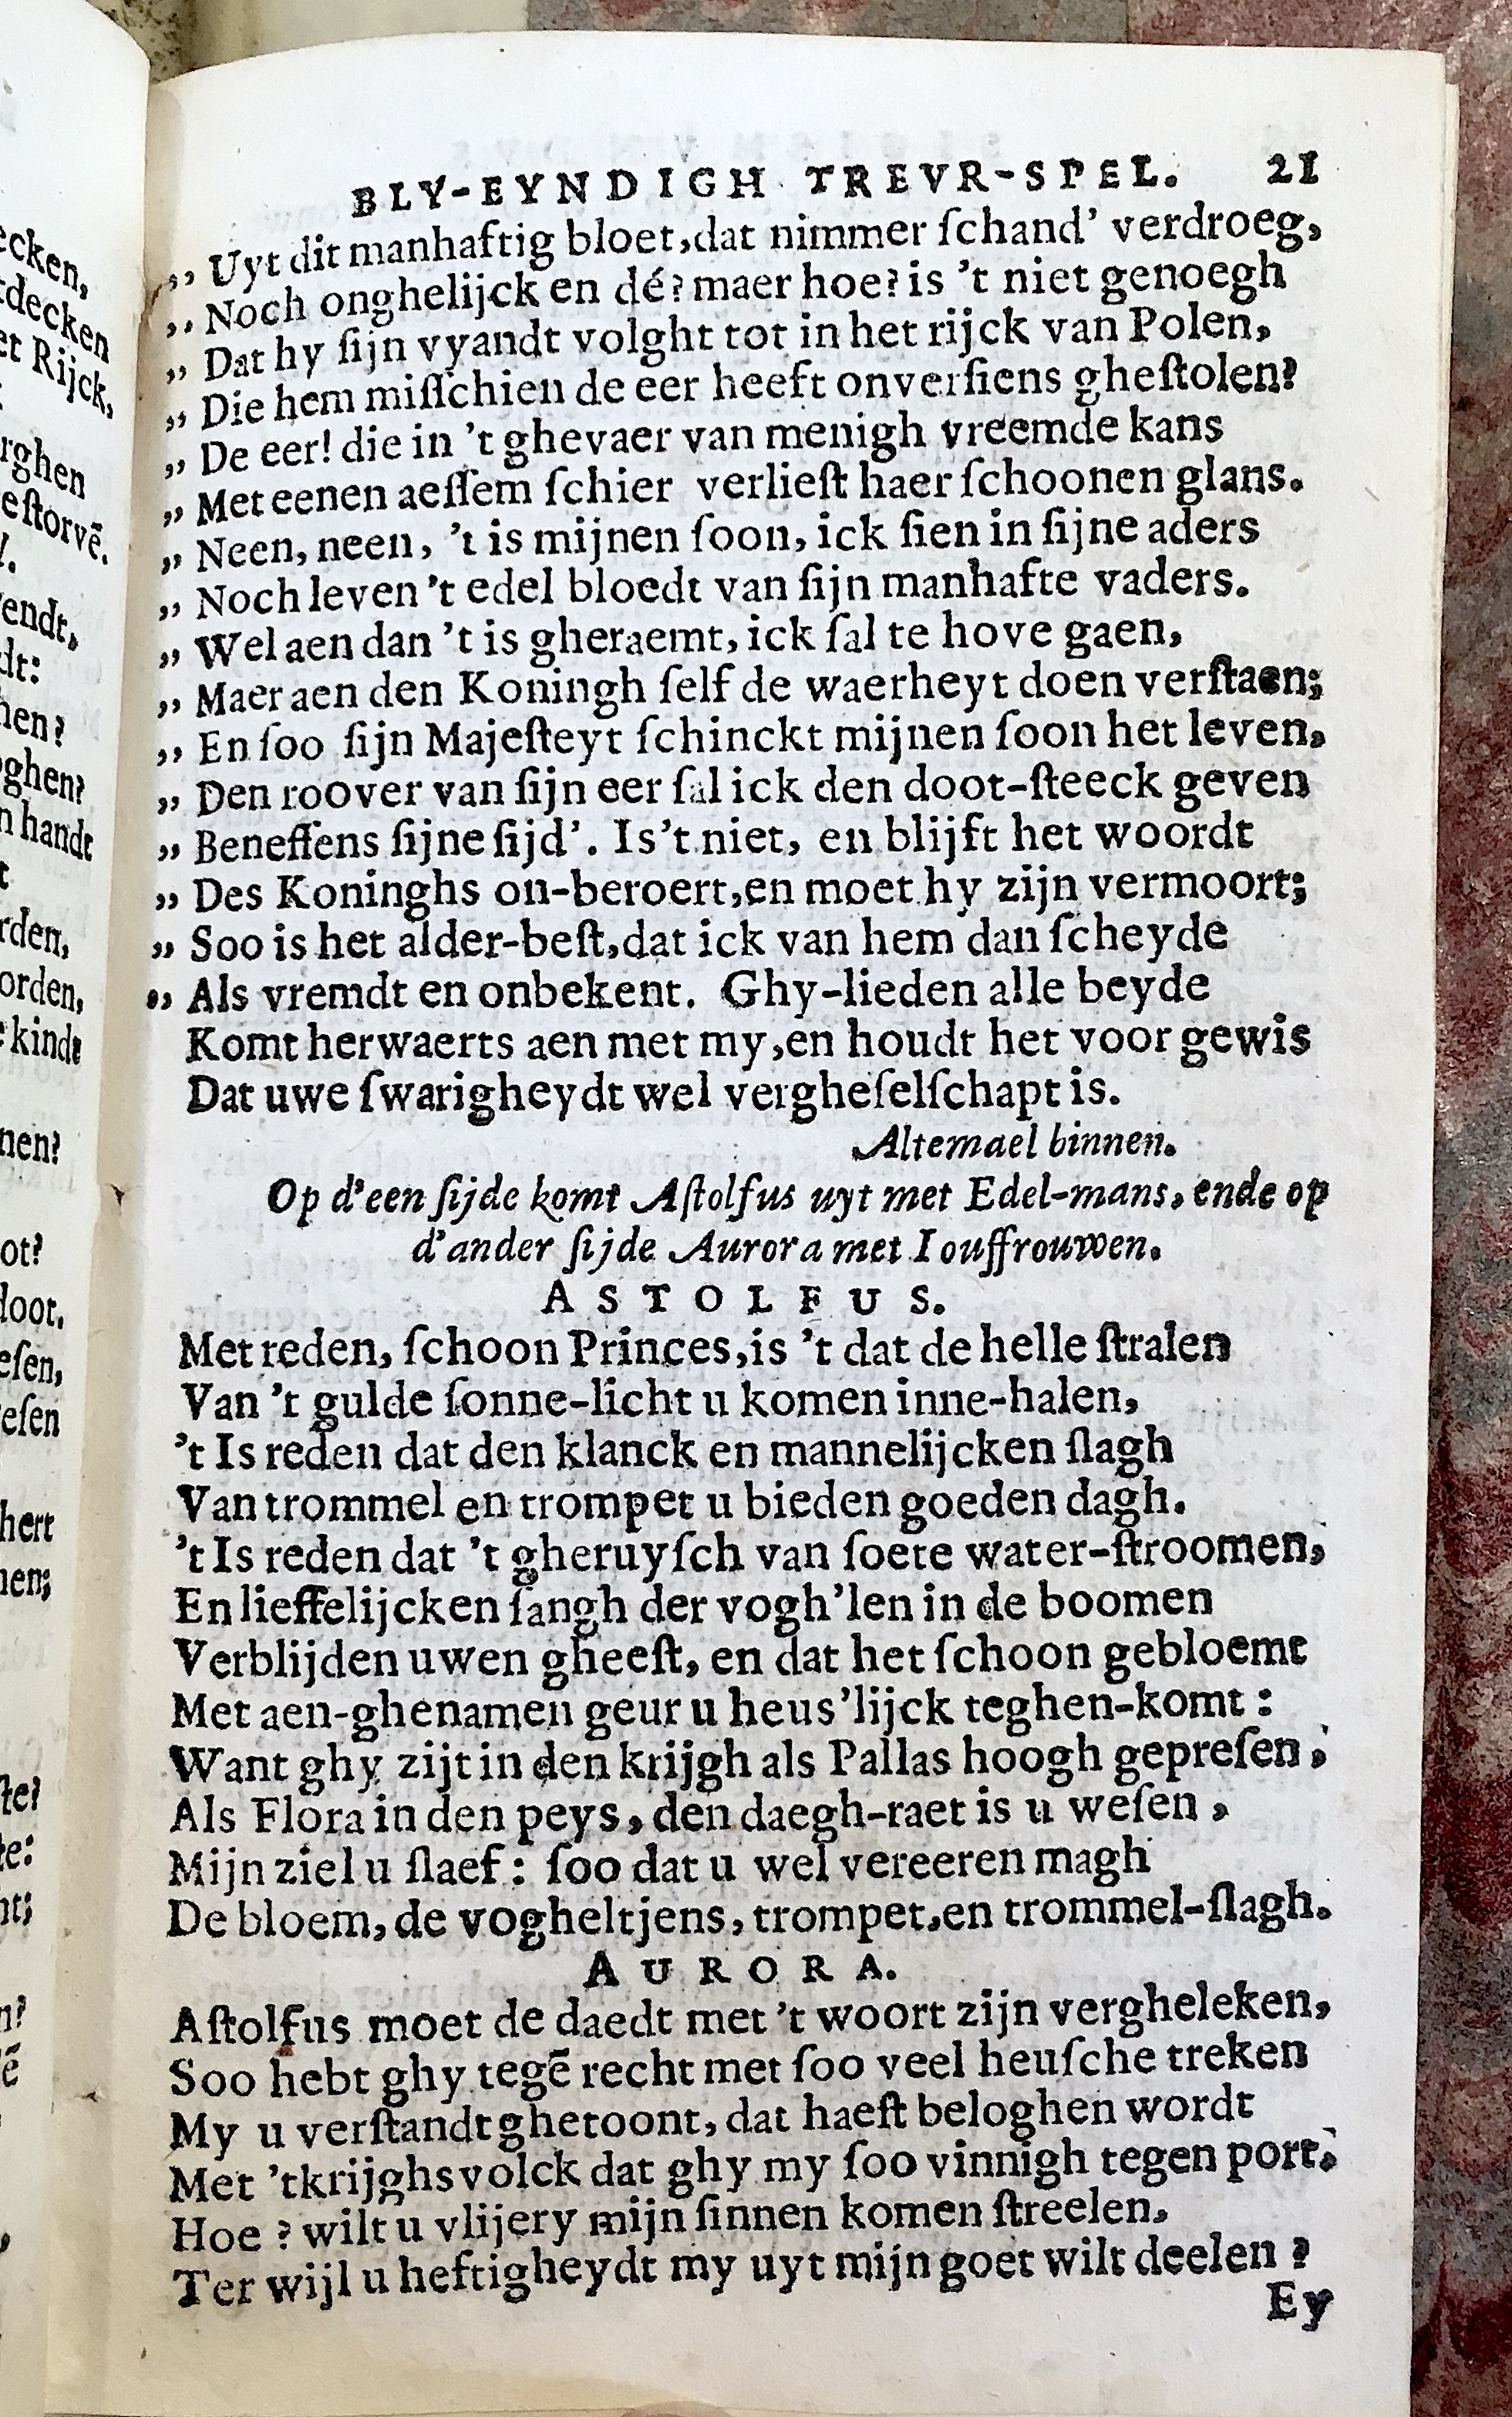 BLY-EYNDIGH TREVR-SPEL. 21
,, Uyt dit manhaftig bloet,dat nimmer ſchand’ verdroeg,
,, Noch onghelijck en dé? maer hoe? is ’t niet genoegh
,, Dat hy ſijn vyandt volght tot in het rijck van Polen,
,, Die hem miſſchien de eer heeft onverſiens gheſtolen?
,, De eer! die in ’t ghevaer van menigh vreemde kans
,, Met eenen aeſſem ſchier verlieſt haer ſchoonen glans.
,, Neen, neen, ’t is mijnen ſoon, ick ſien in ſijne aders
,, Noch leven ’t edel bloedt van ſijn manhafte vaders.
,, Wel aen dan ’t is gheraemt, ick ſal te hove gaen,
,, Maer aen den Koningh ſelf de waerheyt doen verſtaen;
,, En ſoo ſijn Majeſteyt ſchinckt mijnen ſoon het leven,
,, Den roover van ſijn eer ſal ick den doot-ſteeck geven
,, Beneffens ſijne ſijd’. Is ’t niet, en blijft het woordt
,, Des Koninghs on-beroert,en moet hy zijn vermoort;
,, Soo is het alder-beſt,dat ick van hem dan ſcheyde
,, Als vremdt en onbekent. Ghy-lieden alle beyde
Komt herwaerts aen met my,en houdt het voor gewis
Dat uwe ſwarigheydt wel vergheſelſchapt is.
Altemael binnen.
Op d’een ſijde komt Aſtolfus uyt met Edel-mans, ende op
d’ander ſijde Aurora met Iouffrouwen.
ASTOLFUS.
Met reden, ſchoon Princes,is ’t dat de helle ſtralen
Van ’t gulde ſonne-licht u komen inne-halen,
’t Is reden dat den klanck en mannelijcken ſlagh
Van trommel en trompet u bieden goeden dagh.
’t Is reden dat ’t gheruyſch van ſoete water-ſtroomen,
En lieffelijcken ſangh der vogh’len in de boomen
Verblijden uwen gheeſt, en dat het ſchoon gebloemt
Met aen-ghenamen geur u heus’lijck teghen-komt :
Want ghy zijt in den krijgh als Pallas hoogh gepreſen,
Als Flora in den peys, den daegh-raet is u weſen ,
Mijn ziel u ſlaef : ſoo dat u wel vereeren magh
De bloem, de vogheltjens, trompet,en trommel-ſlagh.
AURORA.
Aſtolfus moet de daedt met ’t woort zijn vergheleken,
Soo hebt ghy tegē recht met ſoo veel heuſche treken
My u verſtandt ghetoont, dat haeſt beloghen wordt
Met ’tkrijghsvolck dat ghy my ſoo vinnigh tegen port.
Hoe ? wilt u vlijery mijn ſinnen komen ſtreelen,
Ter wijl u heftigheydt my uyt mijn goet wilt deelen ?
Ey